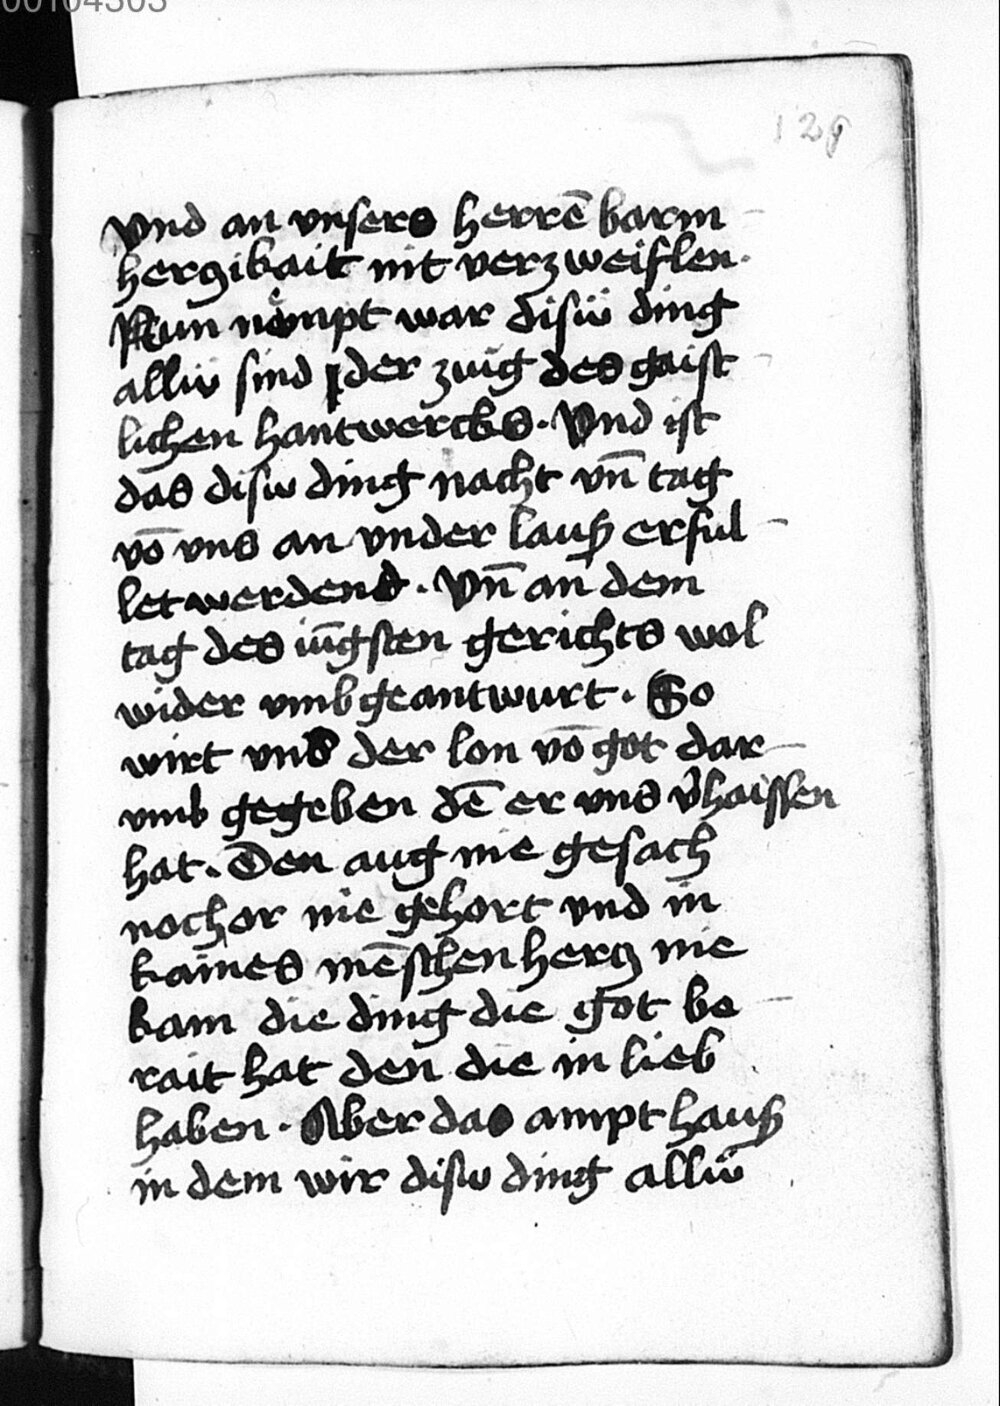 00104303
129
Vnd an vnsers herrē barm
herczikait nit verzweiflen.
Nun nempt war disü ding
alliu sind der zuig des gaist
lichen hantwercks. Vnd ist
das disiu ding nacht vn̄ tag
vō vns an vnder lauß erful
let werdend. Vn̄ an dem
tag des iūgsten gerichts wol
wider vmb geantwurt. So
wirt vns der lon vō got dar
vmb gegeben dē er vns v̓haissen
hat. Den aug nie gesach
noch or nie gehort vnd in
kaines mēschen hercz nie
kam die ding die got be
rait hat den die in lieb
haben. Aber das ampt hauß
in dem wir disiu ding alliu